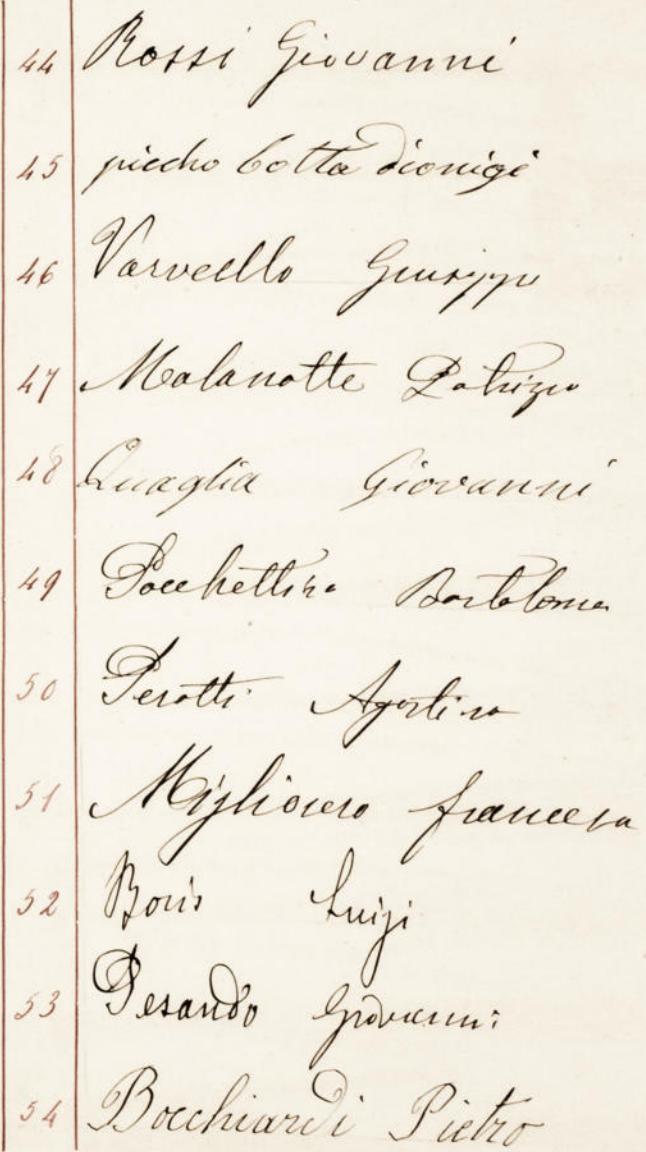 44 Rossi Giovanni
45 piccho botta dionigi
46 Varvello Giuseppe
47 Malanotte Patrizio
48 Quaglia Giovanni
49 Pocchettino Bartolomeo
50 Perotti Agostino
51 Migliorero francesco
52 Boris Luigi
53 Pesando Giovanni
54 Bocchiardi Pietro